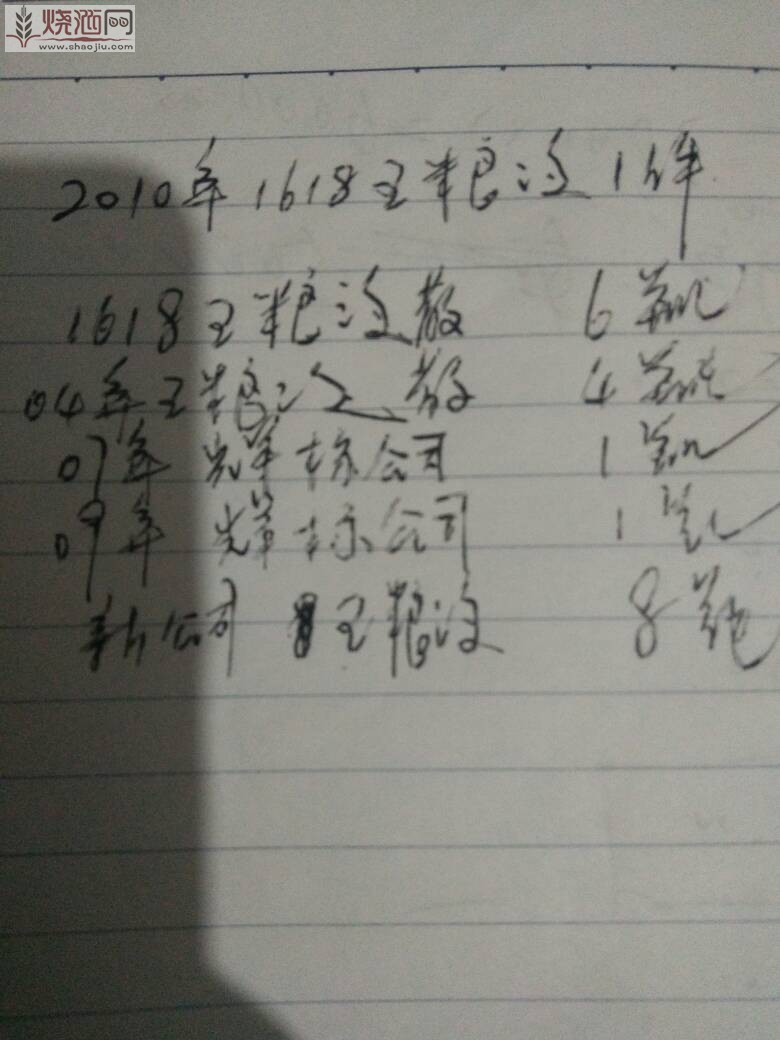 烧酒网
www.shaojiu.com
2010年1618五粮液1件
1618五粮液散 6瓶
04年五粮液散 4瓶
07年 光华 标公司 1瓶
09年 光华 标公司 1瓶
新公司 五粮液 8瓶